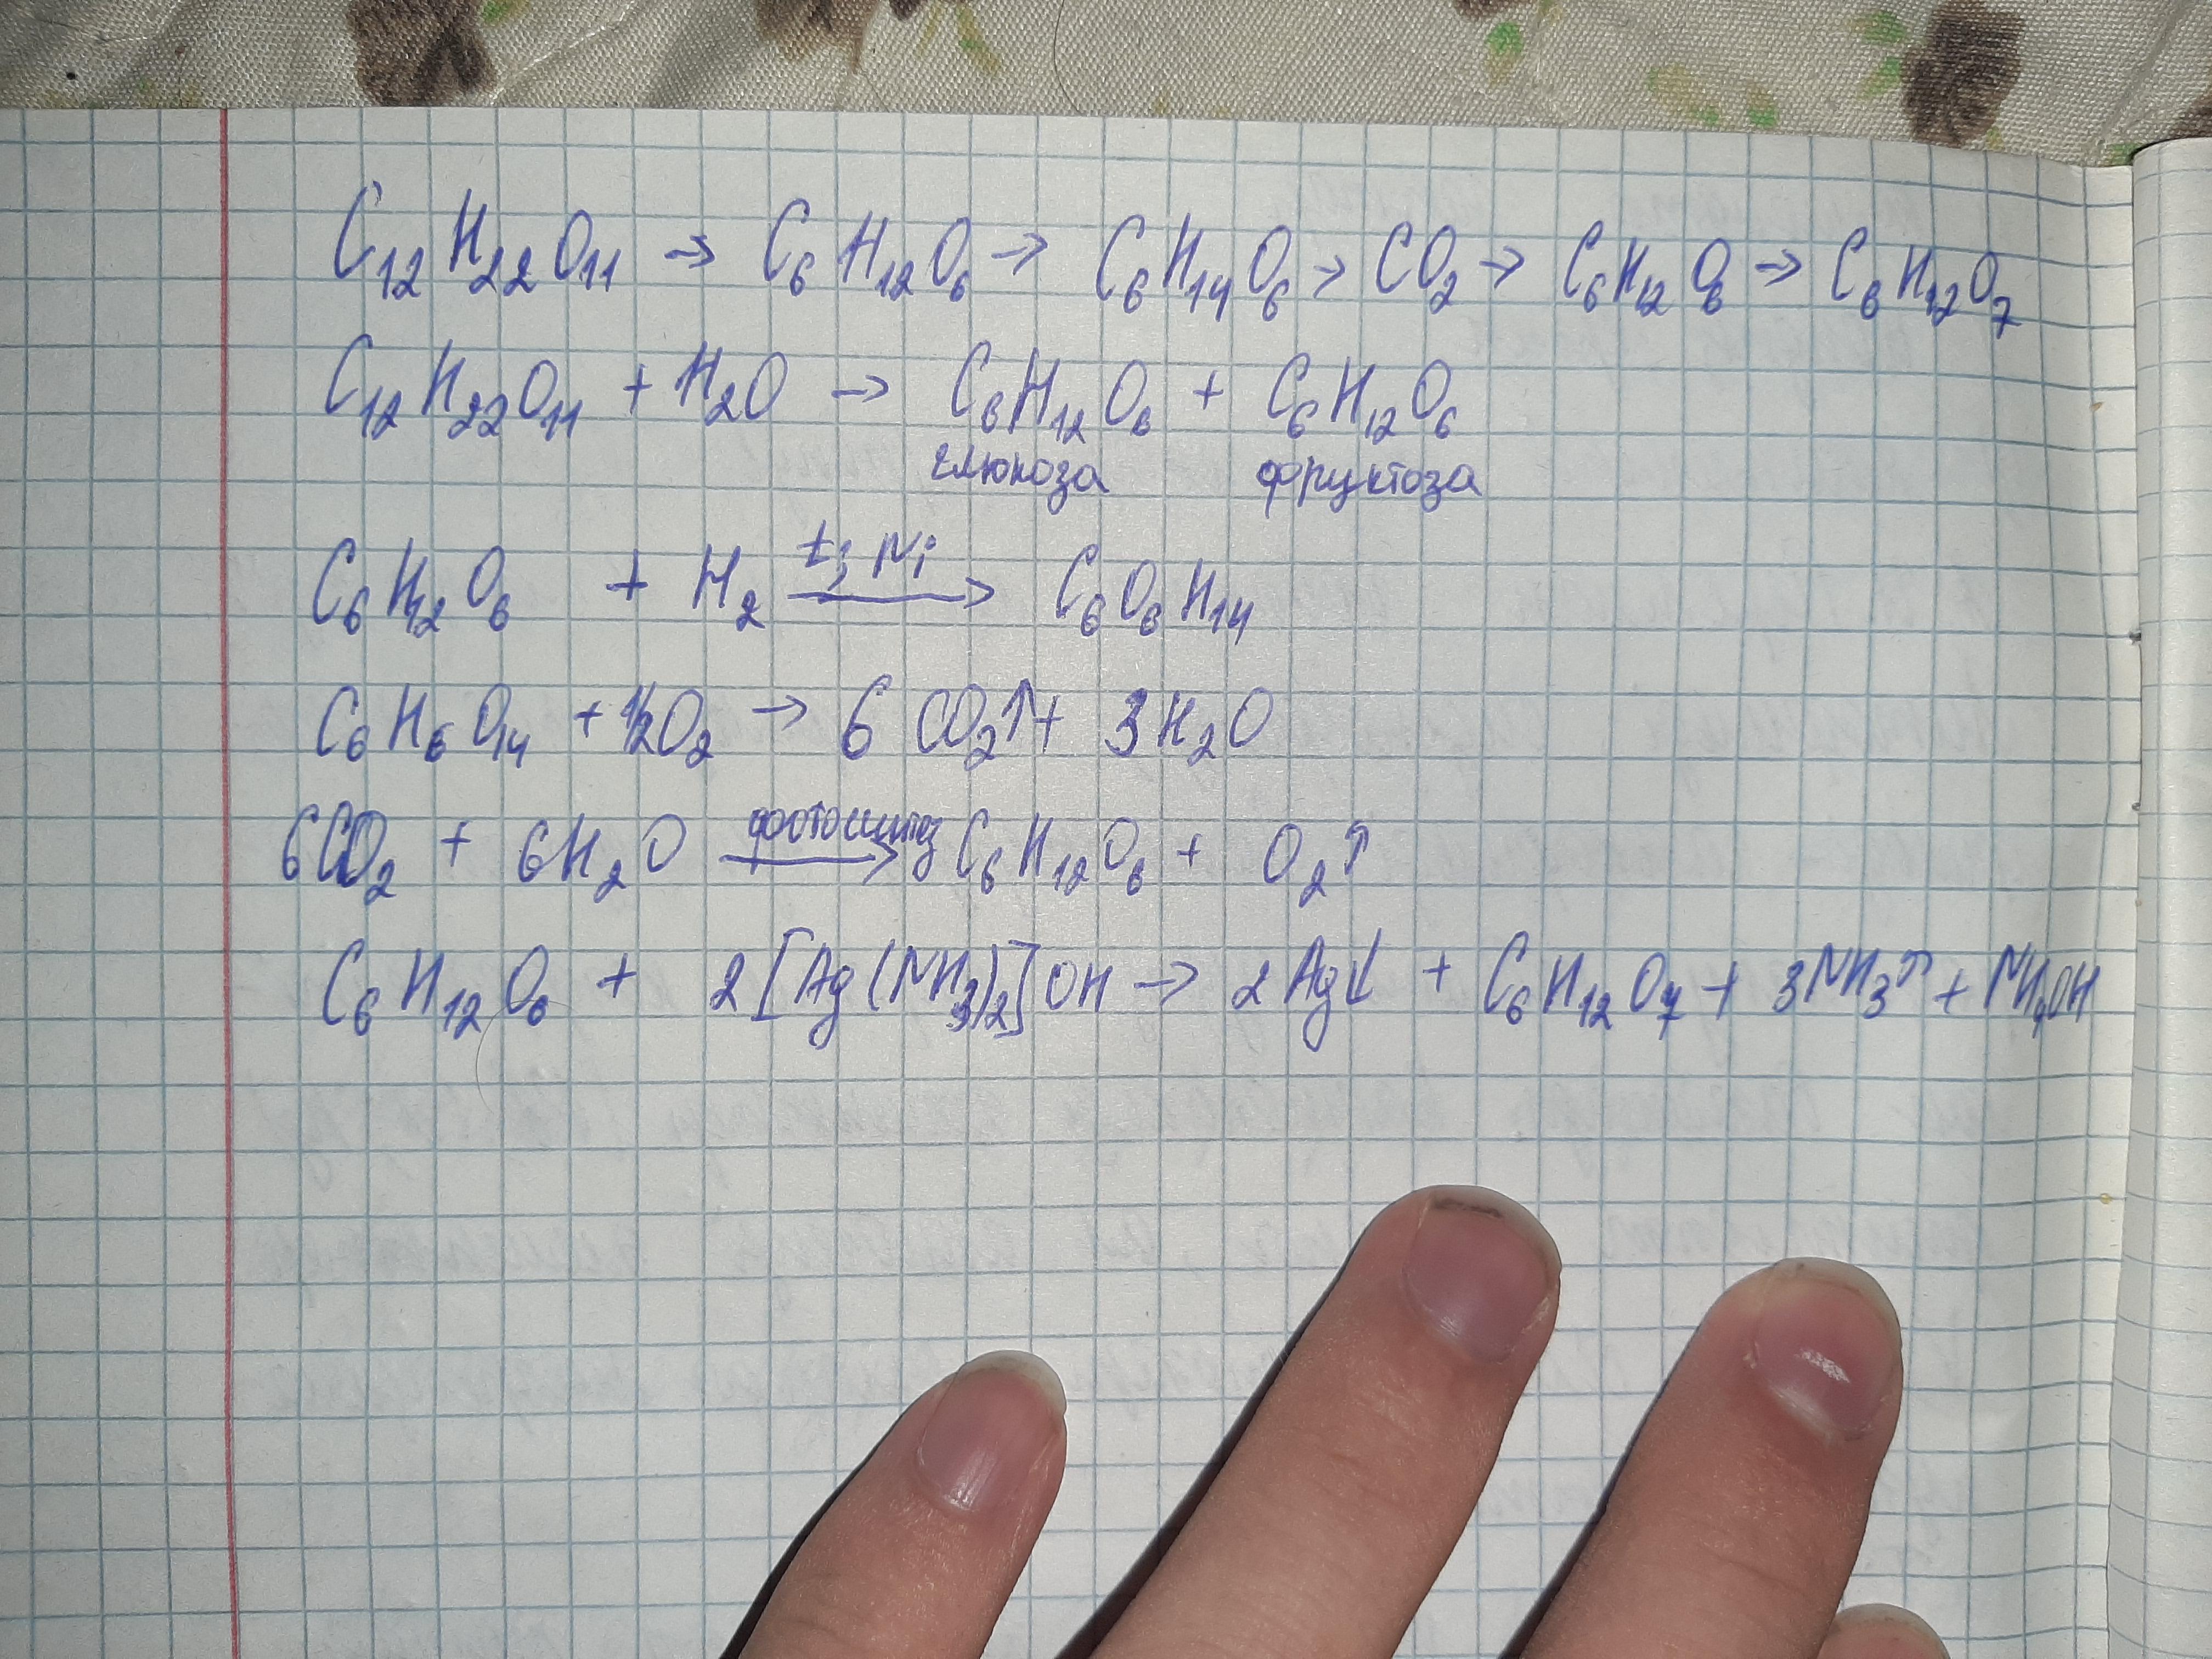 C₁₂H₂₂O₁₁ → C₆H₁₂O₆ → C₆H₁₄O₆ → CO₂ → C₆H₁₂O₆ → C₆H₁₂O₇
C₁₂H₂₂O₁₁ + H₂O → C₆H₁₂O₆ + C₆H₁₂O₆
глюкоза фруктоза
C₆H₁₂O₆ + H₂ t; Ni → C₆O₆H₁₄
C₆H₆O₁₄ + 1/2O₂ → 6CO₂↑ + 3H₂O
6CO₂ + 6H₂O фотосинтез → C₆H₁₂O₆ + O₂↑
C₆H₁₂O₆ + 2[Ag(NH₃)₂]OH → 2Ag↓ + C₆H₁₂O₇ + 3NH₃↑ + NH₄OH